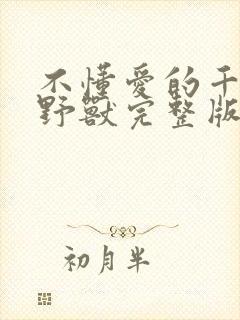 不懂愛的千
野獸完整版
初月半